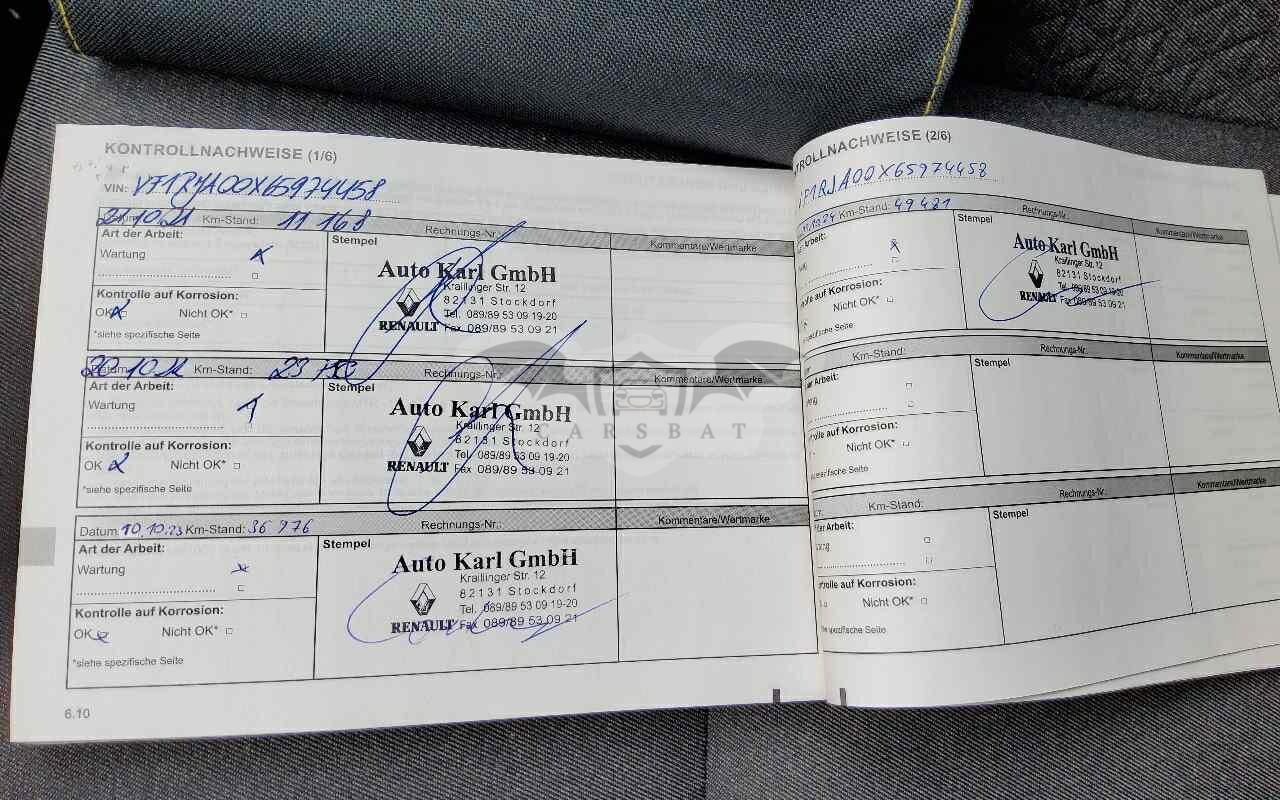 KONTROLLNACHWEISE (1/6)
VIN: VF1RJA00X65974458
21.10.21 Km-Stand: 11 168 Rechnungs-Nr.: Kommentare/Wertmarke
Art der Arbeit:
Wartung
Stempel
Auto Karl GmbH
Kraillinger Str. 12
82131 Stockdorf
Tel. 089/89 53 09 19-20
RENAULT Fax 089/89 53 09 21
Kontrolle auf Korrosion:
OK Nicht OK*
*siehe spezifische Seite
Datum: 20.10.22 Km-Stand: 23 Rechnungs-Nr.: Kommentare/Wertmarke
Art der Arbeit:
Wartung
Stempel
Auto Karl GmbH
Kraillinger Str. 12
82131 Stockdorf
Tel. 089/89 53 09 19-20
RENAULT Fax 089/89 53 09 21
Kontrolle auf Korrosion:
OK Nicht OK*
*siehe spezifische Seite
Datum: 10.10.23 Km-Stand: 36 976 Rechnungs-Nr.: Kommentare/Wertmarke
Art der Arbeit:
Wartung
Stempel
Auto Karl GmbH
Kraillinger Str. 12
82131 Stockdorf
Tel. 089/89 53 09 19-20
RENAULT Fax 089/89 53 09 21
Kontrolle auf Korrosion:
OK Nicht OK*
*siehe spezifische Seite
6.10
TROLLNACHWEISE (2/6)
VF1RJA00X65974458
Km-Stand: 49 421 Rechnungs-Nr.: Kommentare/Wertmarke
Arbeit:
Stempel
Auto Karl GmbH
Kraillinger Str. 12
82131 Stockdorf
Tel. 089/89 53 09 19-20
RENAULT Fax 089/89 53 09 21
ntrolle auf Korrosion:
Nicht OK*
spezifische Seite
Km-Stand: Rechnungs-Nr.: Kommentare/Wertmarke
er Arbeit:
Stempel
rolle auf Korrosion:
Nicht OK*
spezifische Seite
Km-Stand: Rechnungs-Nr.: Kommentare/Wertmarke
der Arbeit:
Stempel
trolle auf Korrosion:
Nicht OK*
spezifische Seite
CARSBAT